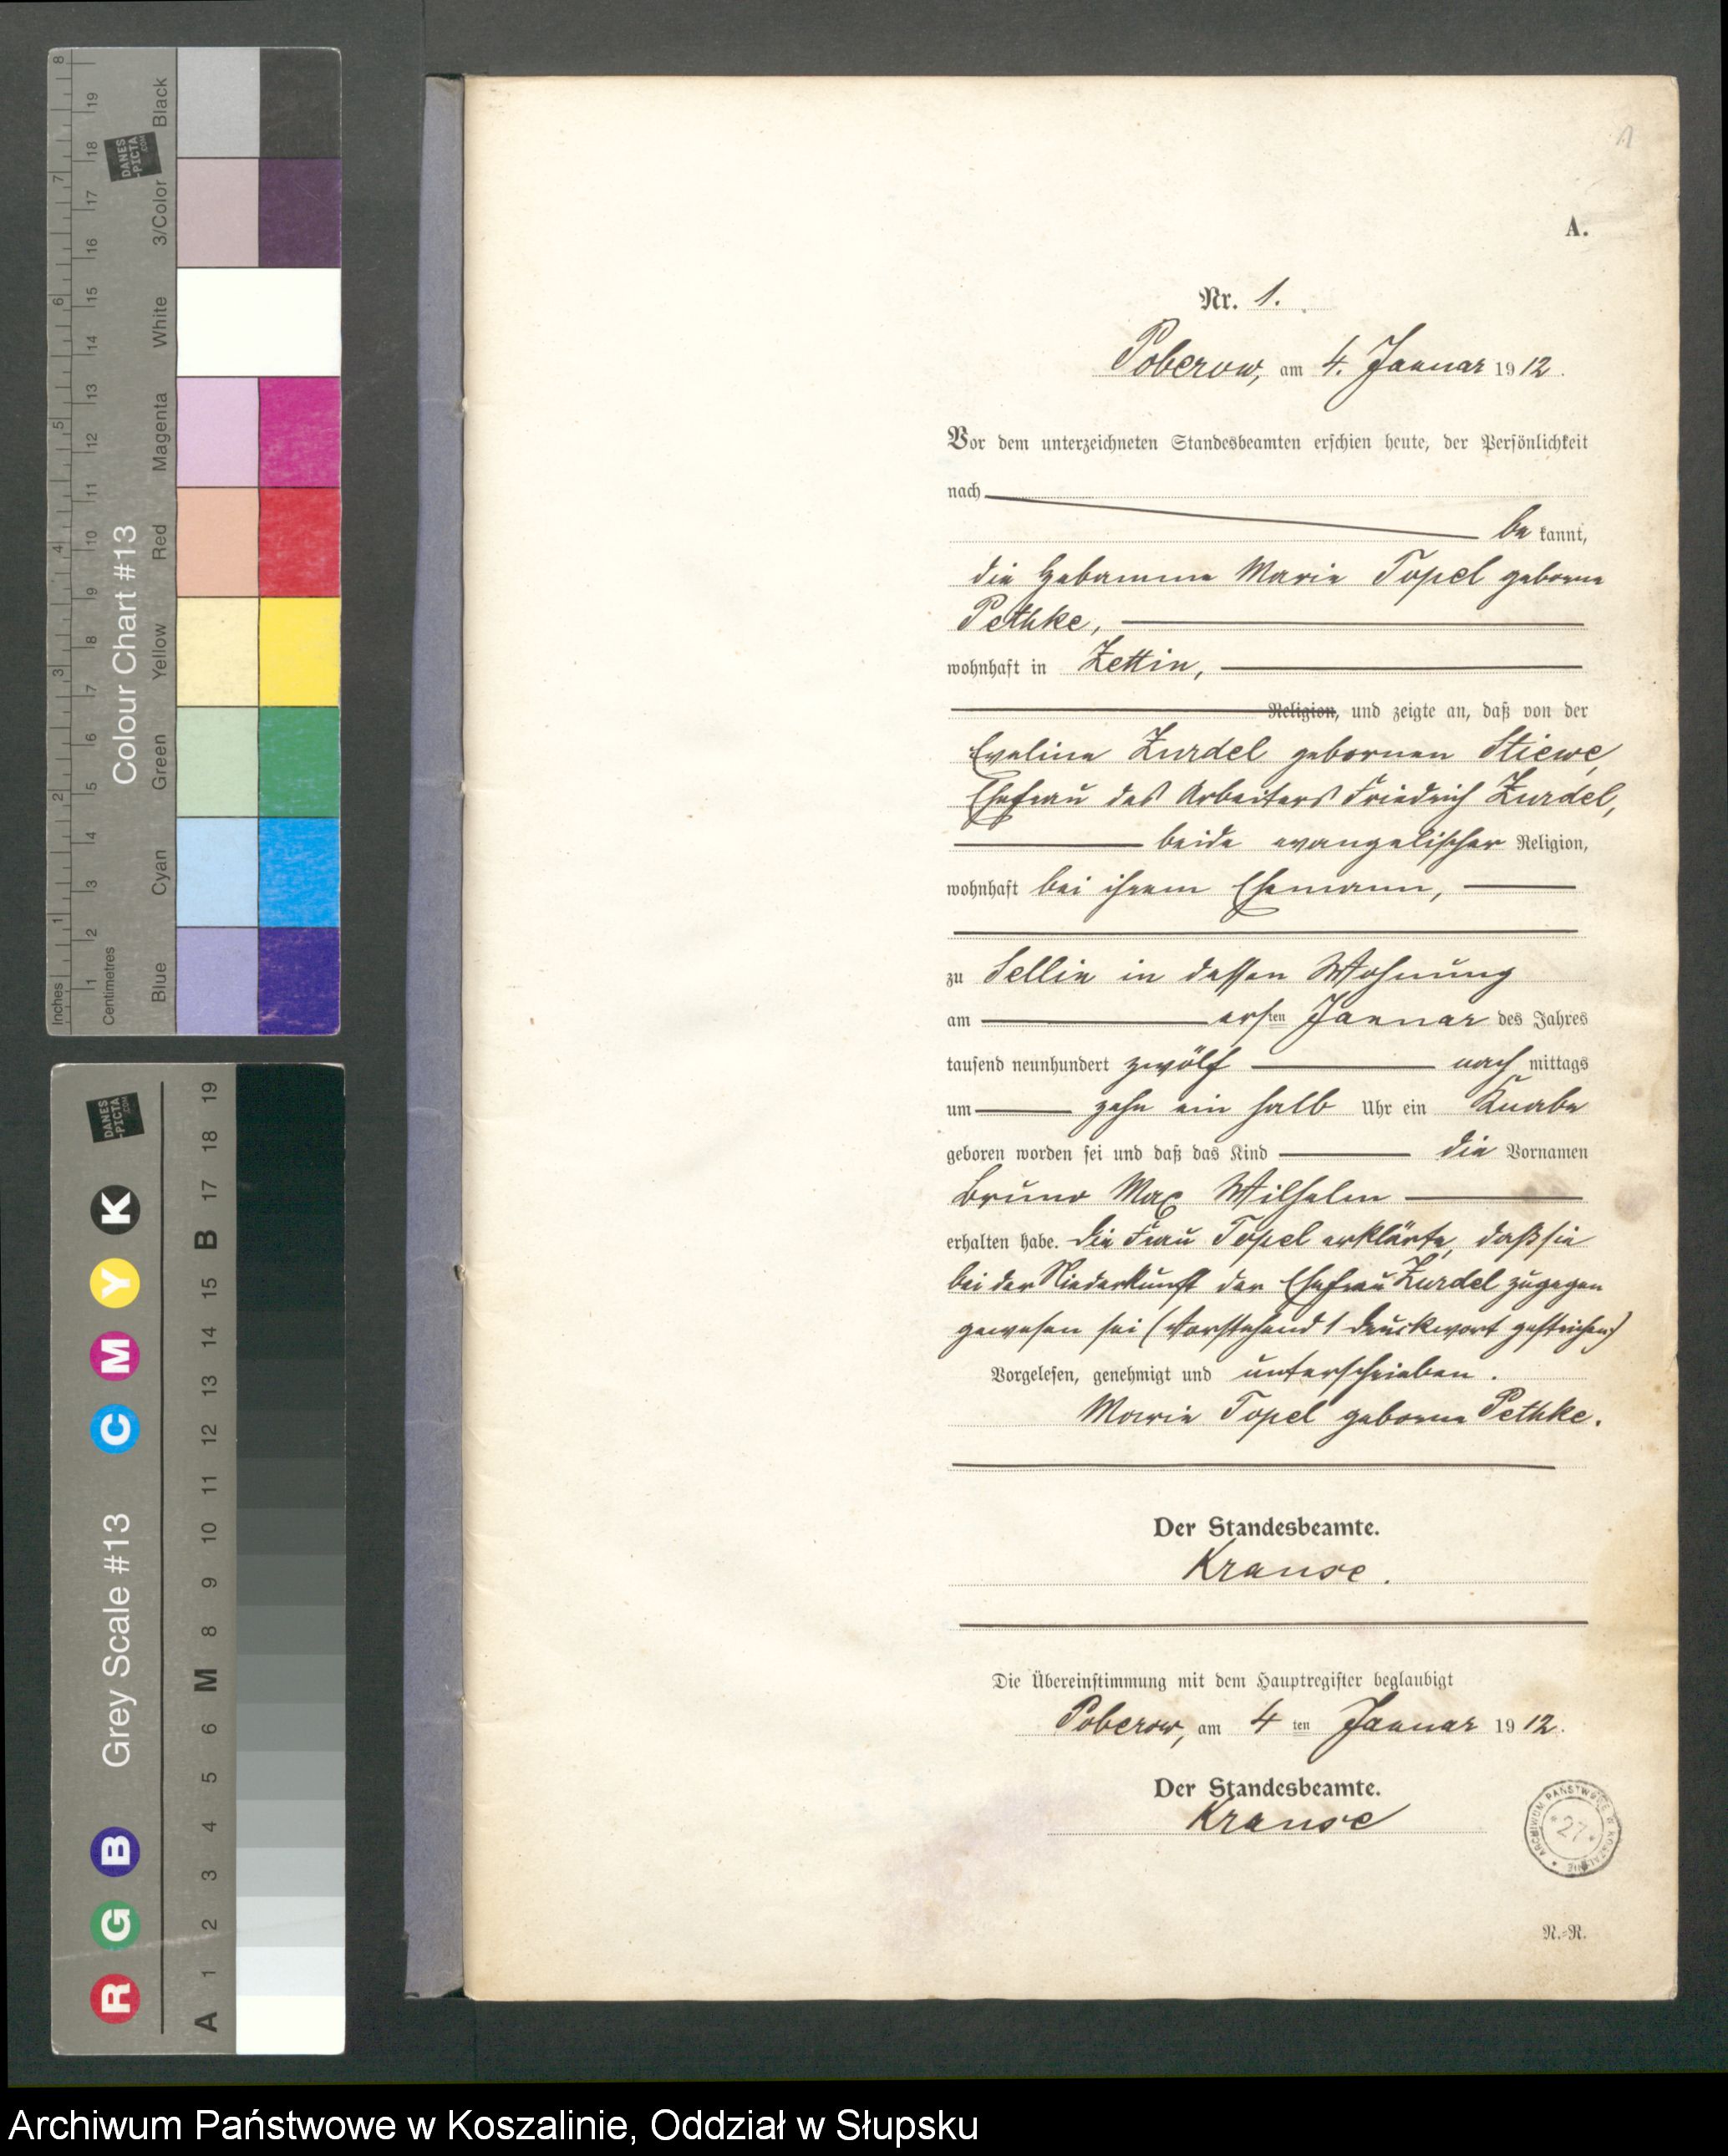 1
A.
Nr. 1.
Poberow, am 4. Januar 1912.
Vor dem unterzeichneten Standesbeamten erschien heute, der Persönlichkeit
nach
be kannt,
die Hebamme Marie Topel geborne
Pethke,
wohnhaft in Zettin,
Religion, und zeigte an, daß von der
Eveline Zurdel gebornen Stiewe,
Ehefrau des Arbeiters Friedrich Zurdel,
beide evangelischer Religion,
wohnhaft bei ihrem Ehemann,
zu Sellin in dessen Wohnung
am ersten Januar des Jahres
tausend neunhundert zwölf nach mittags
um zehn ein halb Uhr ein Knabe
geboren worden sei und daß das Kind die Vornamen
Bruno Max Wilhelm
erhalten habe. Die Frau Topel erklärte, daß sie
bei der Niederkunft der Ehefrau Zurdel zugegen
gewesen sei (Vorstehend 1 Druckwort gestrichen)
Vorgelesen, genehmigt und unterschrieben.
Marie Topel geborne Pethke.
Der Standesbeamte.
Krause.
Die Übereinstimmung mit dem Hauptregister beglaubigt
Poberow, am 4 ten Januar 1912.
Der Standesbeamte.
Krause
ARCHIWUM PAŃSTWOWE W KOSZALINIE
27
N.-R.
Inches 1 2 3 4 5 6 7 8
Centimetres 1 2 3 4 5 6 7 8 9 10 11 12 13 14 15 16 17 18 19
Colour Chart #13
DANES
-PICTA
.COM
Blue Cyan Green Yellow Red Magenta White 3/Color Black
Grey Scale #13
DANES
-PICTA
.COM
R G B C M Y K
A 1 2 3 4 5 6 M 8 9 10 11 12 13 14 15 B 17 18 19
Archiwum Państwowe w Koszalinie, Oddział w Słupsku